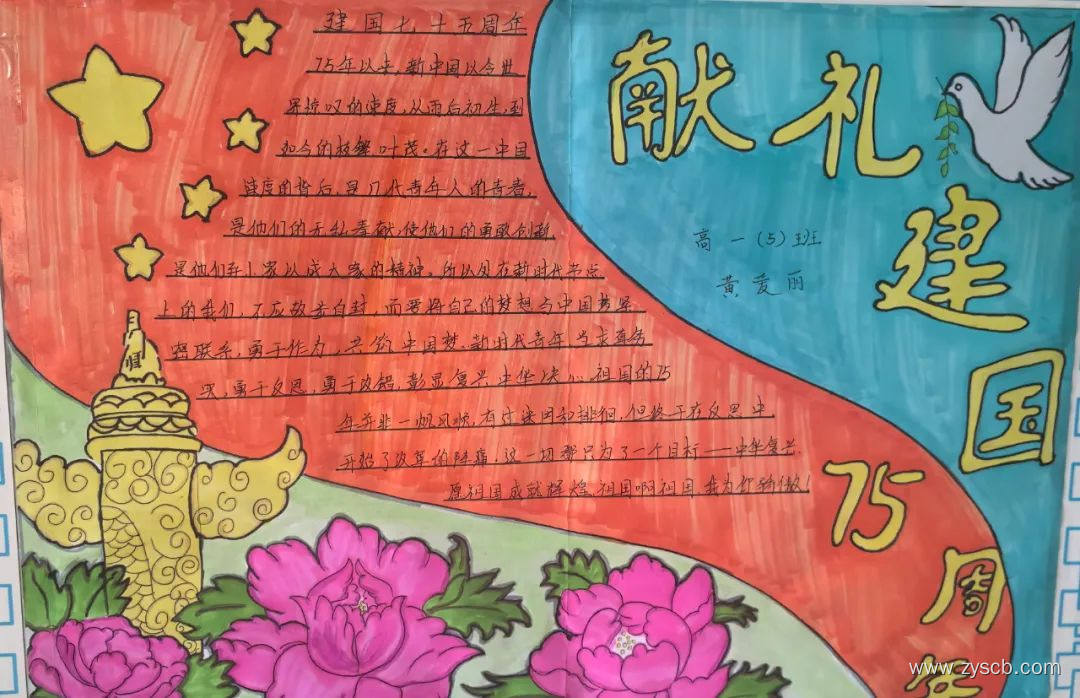 献礼建国75周年
高一(5)班
黄爱丽
建国七十五周年
75年以来,新中国以令世
界惊叹的速度,从雨后初生,到
如今的枝繁叶茂。在这一中国
速度的背后,是几代青年人的青春,
是他们的无私奉献,使他们的勇敢创新,
是他们舍小家以成大家的精神。所以处在新时代节点
上的我们,不应故步自封,而要将自己的梦想与中国梦紧
密联系,勇于作为,共筑中国梦。新时代青年当求真务
实,勇于反思,勇于改错,彰显复兴中华决心。祖国的75
年并非一帆风顺,有过迷困和徘徊,但终于在反思中
开始了改革的阵痛,这一切都只为了一个目标——中华复兴.
愿祖国成就辉煌,祖国啊祖国,我为你骄傲!
www.zyscb.com